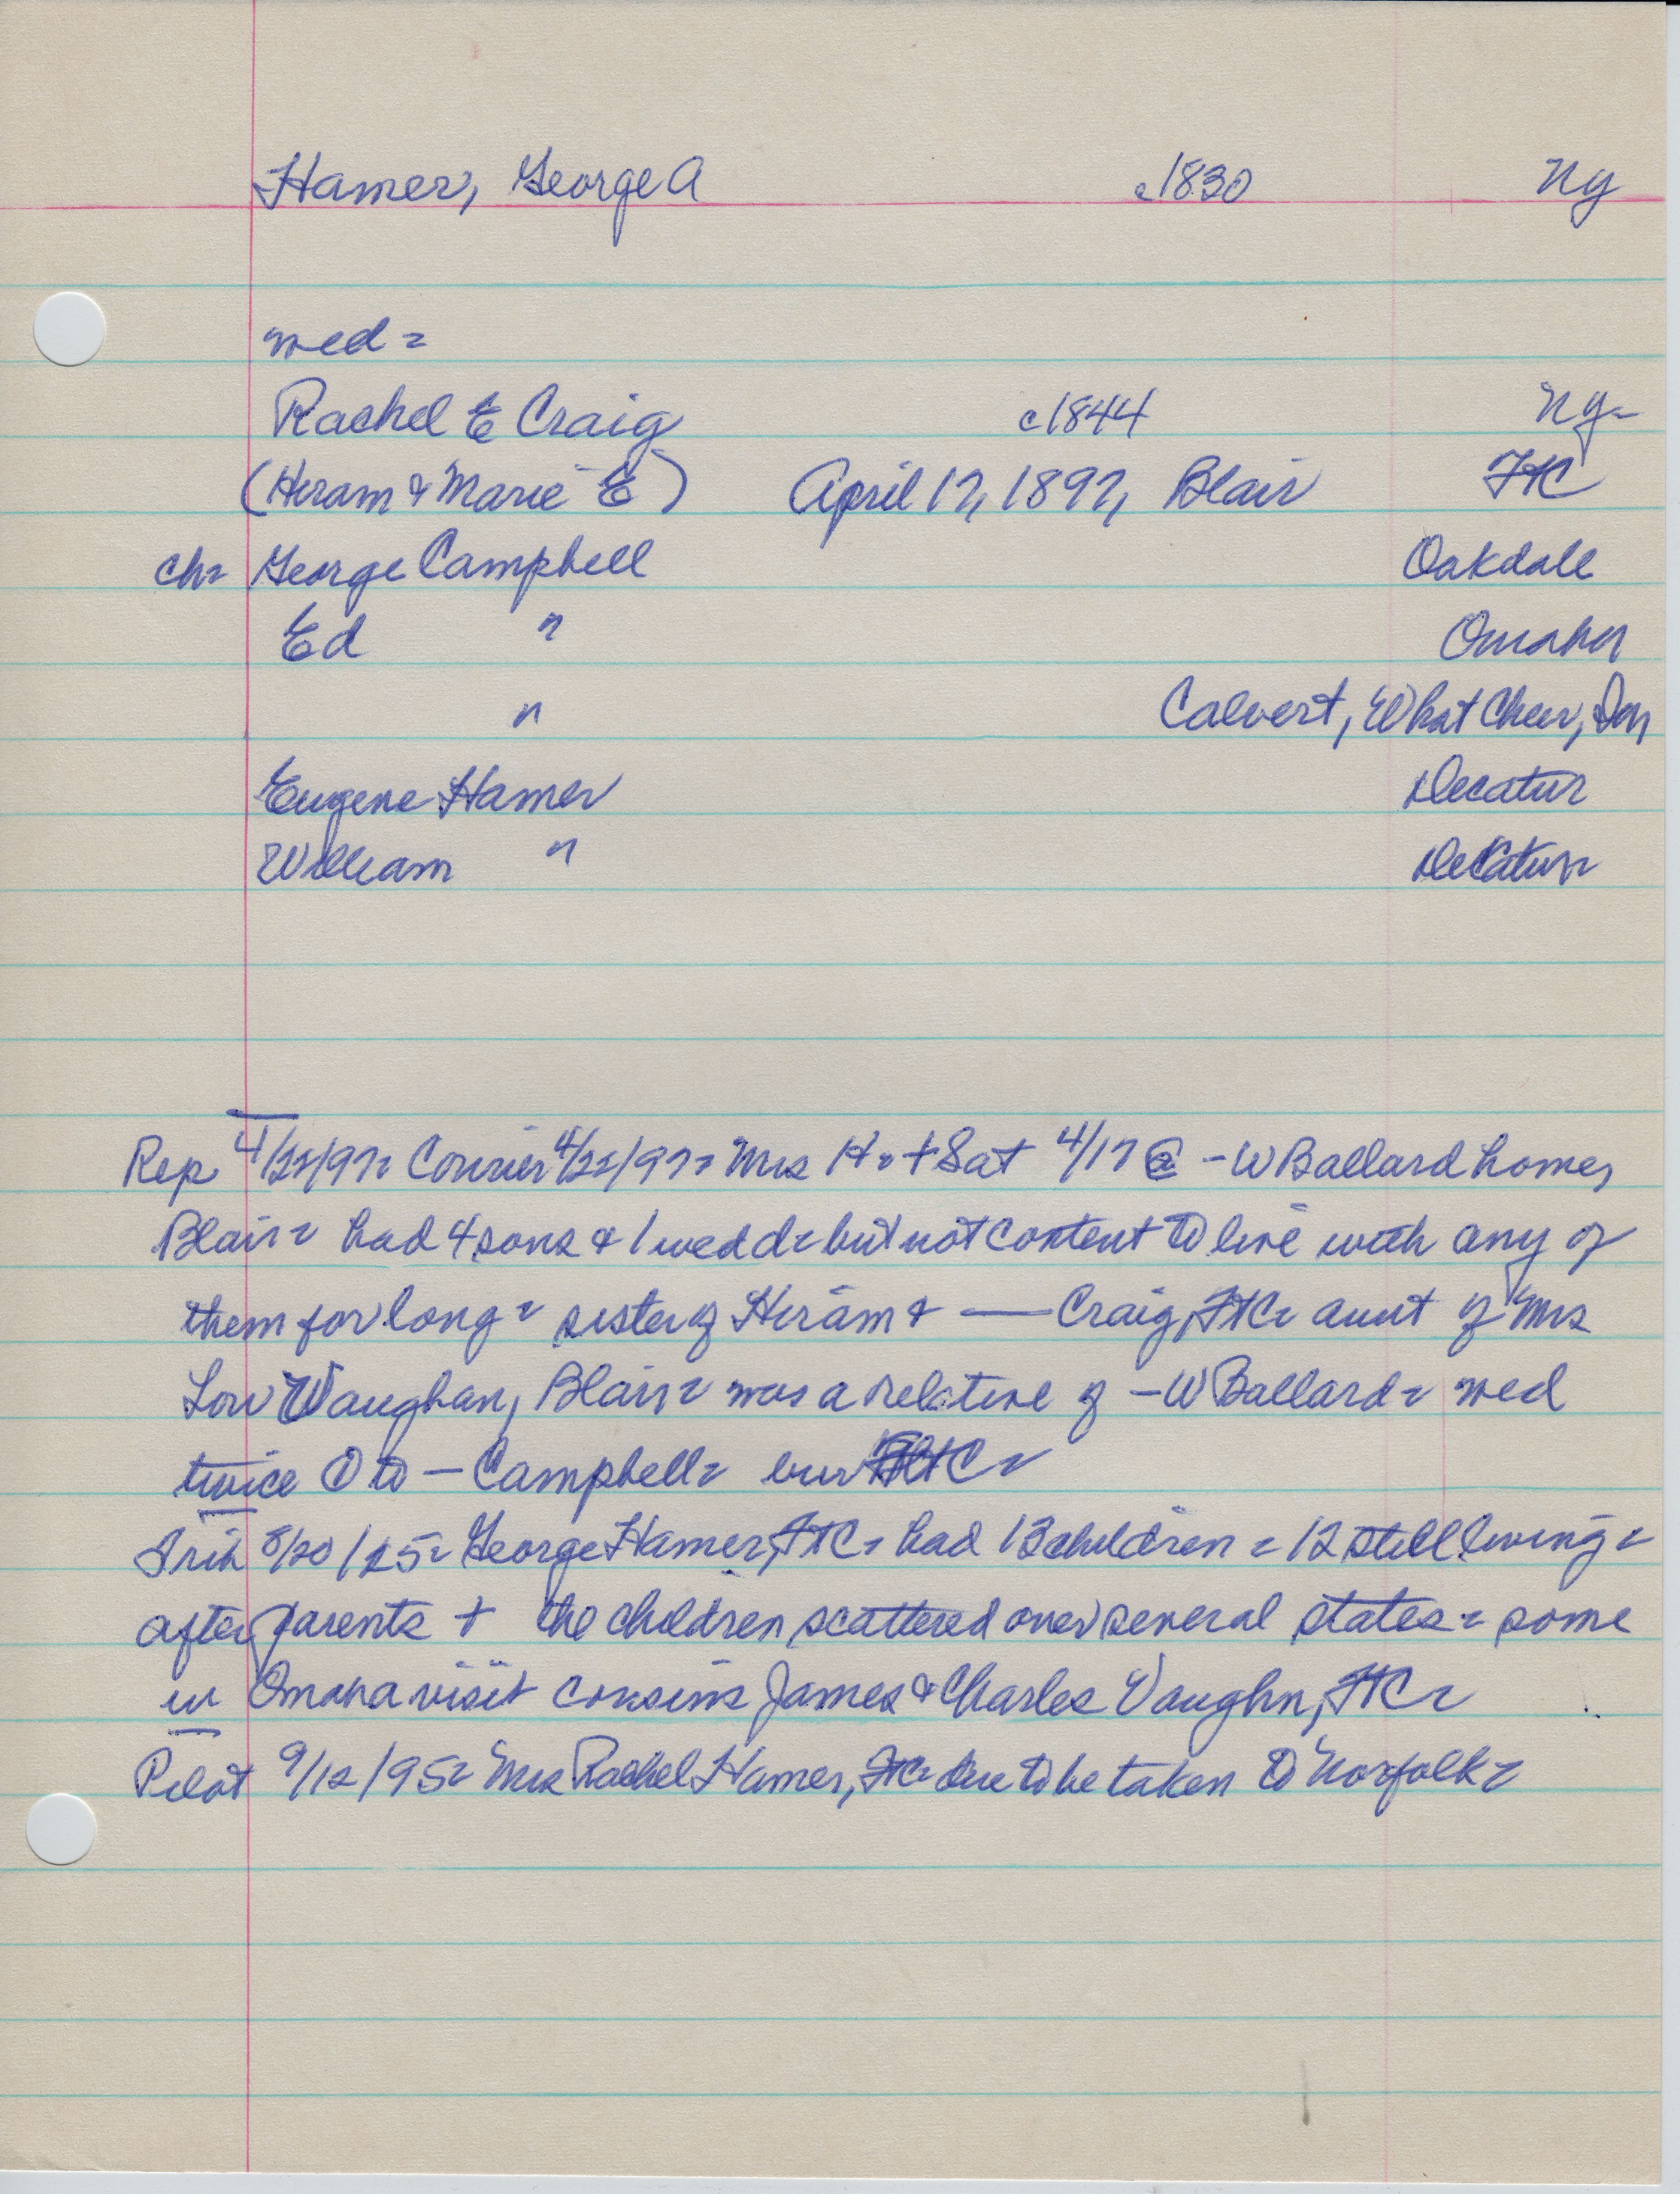 Hamer, George A c1830 Ny
wed =
Rachel E Craig c1844 Ny-
(Hiram & Marie E) April 17, 1897, Blair FtC
ch= George Campbell Oakdale
Ed " Omaha
" Calvert, What Cheer, Ia
Eugene Hamer Decatur
William " Decatur
Rep 4/22/97= Courier 4/22/97= Mrs H. + Sat 4/17 @ - W Ballard home,
Blair= had 4 sons & 1 wed d= but not content to live with any of
them for long= sister of Hiram & — Craig, FtC= aunt of Mrs
Lou Vaughan, Blair= was a relative of - W Ballard= wed
twice ① to - Campbell= bur FtC=
Trib 8/20/25= George Hamer, FtC= had 13 children = 12 still living=
after parents + the children scattered over several states= some
in Omaha visit cousins James & Charles Vaughn, FtC=
Pilot 9/12/95= Mrs Rachel Hamer, FtC= due to be taken to Norfolk=